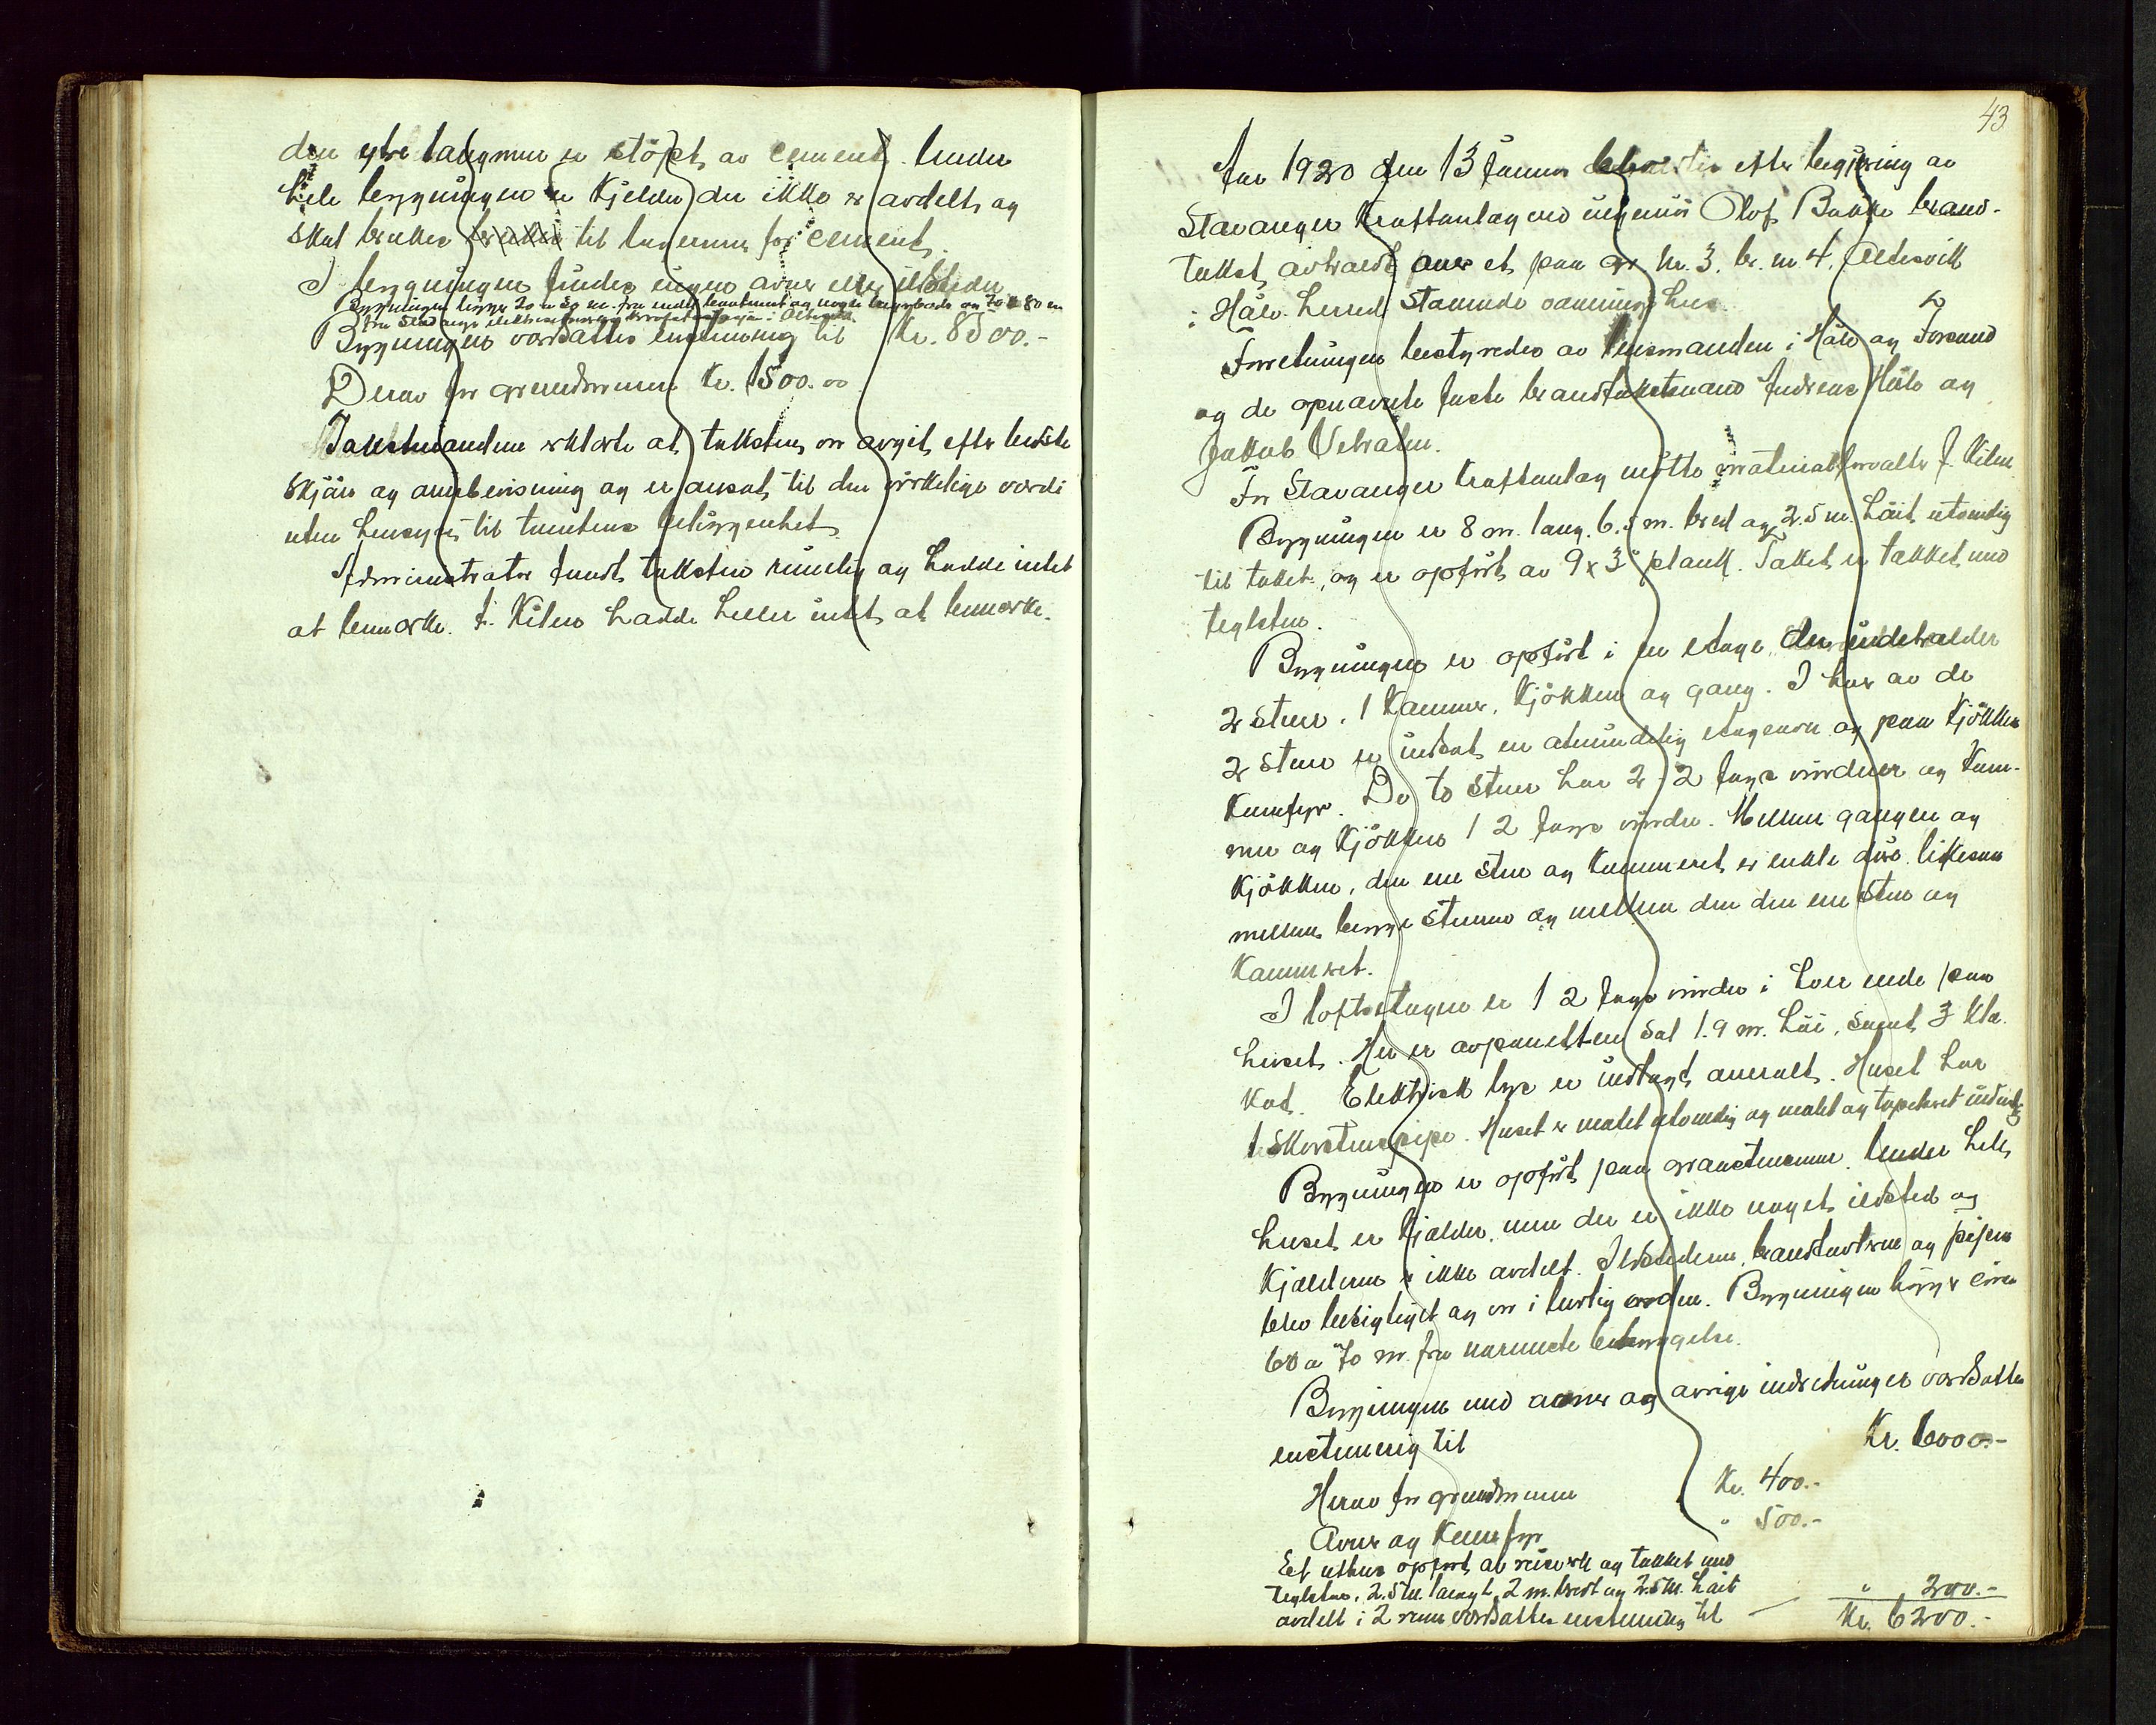 den ytre langmur er støpt av cement. Under
hele bygningen er kjelder der ikke er avdelt, og
skal brukes brukes til lagerrum for cement.
I bygningen findes ingen ovner eller ildsteder
Bygningen ligger 20 a 30 m. fra endel brakker og nogle og 70 a 80 m
fra Stavanger elektro i Oltesvik
Bygningen værdsattes enstemmig til Kr. 8500.-
Derav for grundmuren Kr. 1500.00
Takstmændene erklærte at taksten er avgit efter bedste
skjøn og overbevisning og er ansat til den virkelige værdi
uten hensyn til tomtens beliggenhet.
Administrator fandt taksten rimelig og hadde intet
at bemerke. F. Kilen hadde heller intet at bemerke.
43
Aar 1920 den 13 Januar blev efter begjæring av
Stavanger Kraftanlæg ved ingeniør Olof Bakke brand-
takst avholdt over et paa gr. nr. 3. br. nr 4. Oltesvik
i Høle herred staaende vaaningshus
Forretningen bestyredes av lensmanden i Høle og Forsand
og de opnævnte faste brandtakstmænd Andreas Høle og
Jakob Østraadt.
For Stavanger Kraftanlæg møtte materialforvalter F. Kilen
Bygningen er 8 m. lang, 6.5 m. bred og 2.5 m. høit utvendig
til taket, og er opført av 9 x 3" plank. Taket er takket med
teglsten.
Bygningen er opført i en etage, der indeholder
2 stuer, 1 kammer, kjøkken og gang. I hver av de
2 stuer er indsat en almindelig etageovn og paa kjøkken
komfyr. De to stuer har 2 - 2 fags vinduer og kam-
mer og kjøkken 1 2 fags vindu. Mellem gangen og
kjøkken, den ene stue og kammeret er enkle døre likesom
mellem begge stuerne og mellem den den ene stue og
kammeret.
I loftsetagen er 1 2 fags vindu i hver ende paa
huset. Her er avpanelt en sal 1.9 m. høi, samt 3 kla.
kot. Elektrisk lys er indlagt overalt. Huset har
1 skorstenspipe. Huset er malet utvendig og malet og tapetseret indvendig
Bygningen er opført paa graastensmur. Under hele
huset er kjælder, men der er ikke noget ildsted og
kjælderen er ikke avdelt. Ildstederne, brandmurene og pipen
blev besigtiget og er i lovlig orden. Bygningen ligger cirka
60 a 70 m. fra nærmeste bebyggelse.
Bygningen med ovner og øvrige indretninger værdsattes
enstemmig til Kr. 6000.-
Herav for grundmuren Kr. 400.-
Ovner og komfyr " 500.-
Et uthus opført av reisverk og takket med
teglsten, 2.5 m. langt, 2 m. bredt og 2.5 m. høit
avdelt i 2 rum værdsattes enstemmig til — " 200.-
Kr. 6200.-